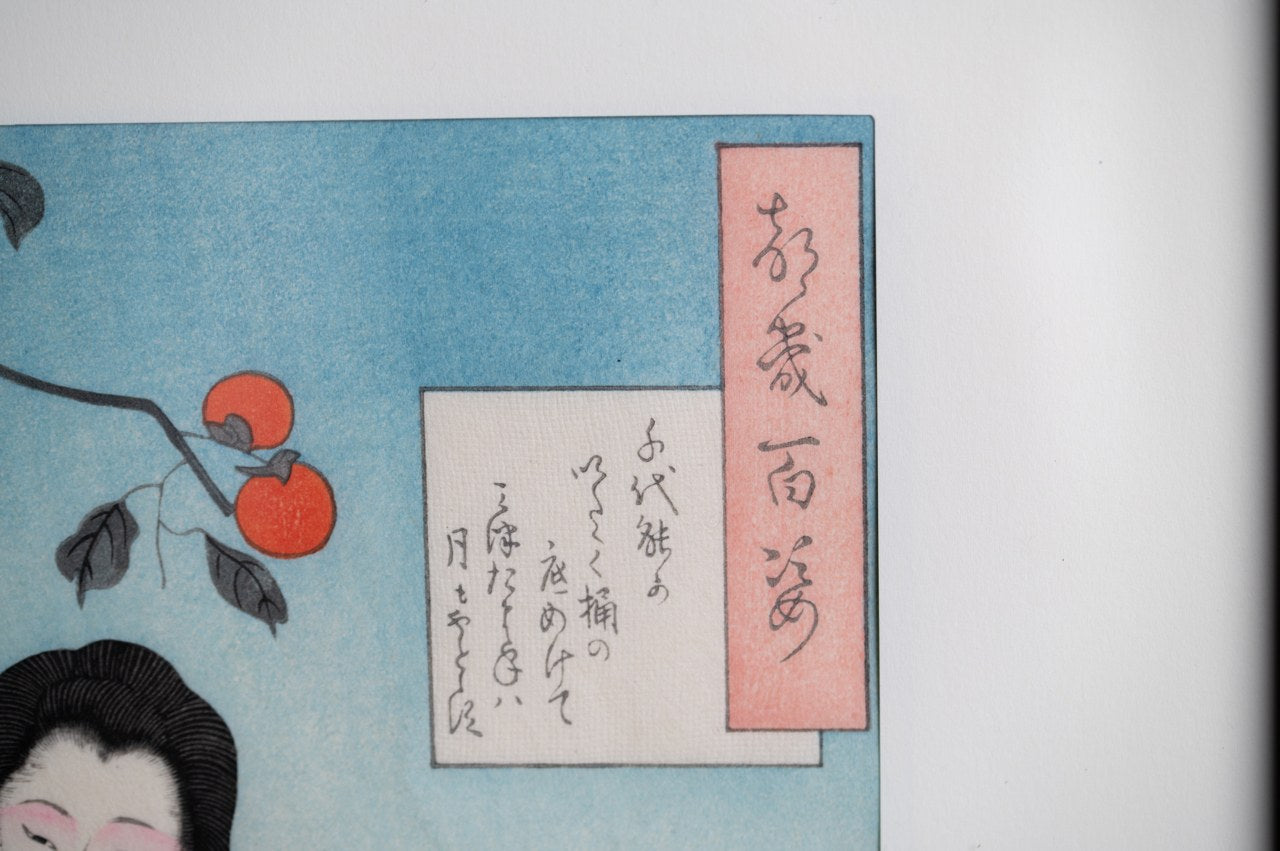 都幾百姿
千代能か
いたゝく桶の
底ぬけて
三津たまらねハ
月もやとらす